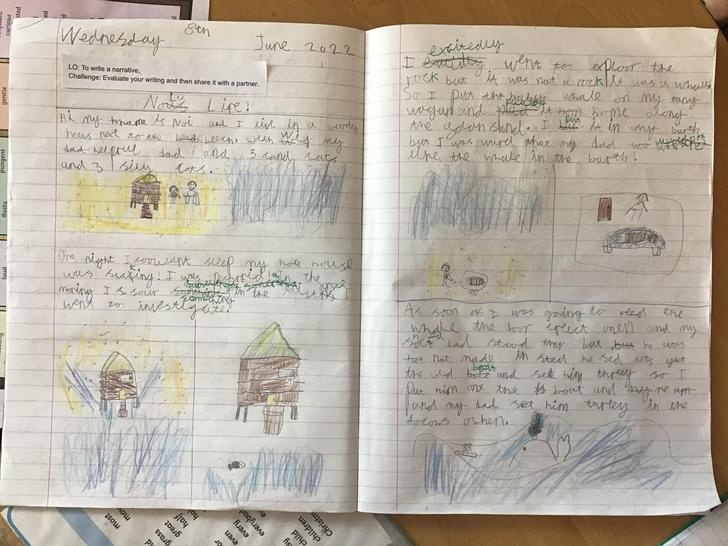 Wednesday 8th June 2022
LO: To write a narrative.
Challenge: Evaluate your writing and then share it with a partner.
Noi's Life!
Hi my name is Noi and I live in a wooden
hous next to the beech with my
helpful dad and 3 sand cats
and 3 silly cats.
One night I couldant sleep my hole house
was shaking! I was in the
moring I sour something in the
went to investigate.
excitedly
I went to exploor the
rock but it was not a rock it was a whale
So I put the baby whale on my tany
wagun and home along
the goldan sand. I put it in my barth
but I was wurd that my dad woo
like the whale in the barth!
As soon as I was going to reed the
whale the door and my
dad stood they but he was
not made in sted he sed lets get
the old boat and set him threy so I
put him onx the boat and
and my dad set him threy in the
oshen.
gentle
pungent
loud
most
half
grass
great
every
everybody
even
eye
child
children
Christmas